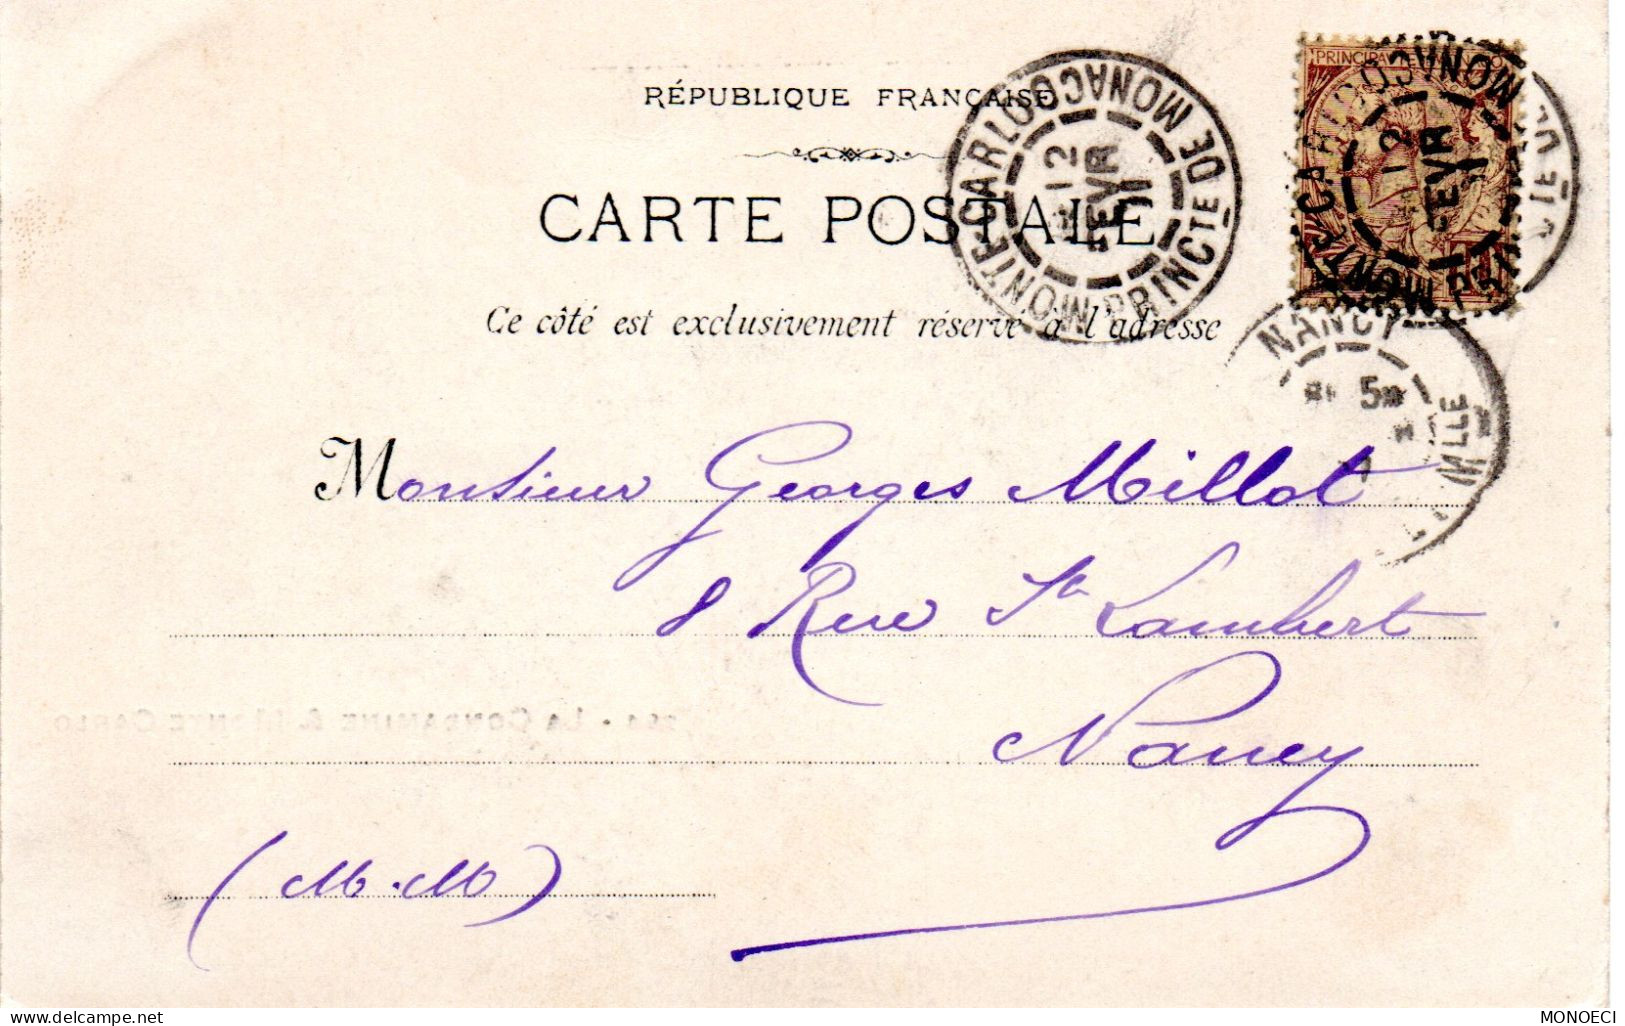 RÉPUBLIQUE FRANÇAISE
CARTE POSTALE
Ce côté est exclusivement réservé à l'adresse
MONTE-CARLO MONACO PRINCTÉ DE MONACO
12 FEVR
PRINCIPAUTÉ DE MONACO
MONTE-CARLO MONACO
12 FEVR
NANCY
5
MLLE
Monsieur Georges Millot
8 Rue St Lambert
Nancy
(M.M)
LA CONDAMINE & MONTE CARLO
delcampe.net
MONOECI